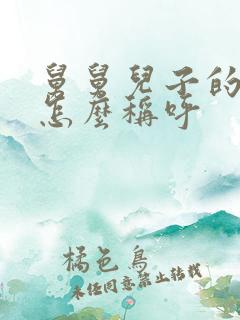 舅舅兒子的
怎麼稱呼
橘色鳥
未經同意禁止轉載